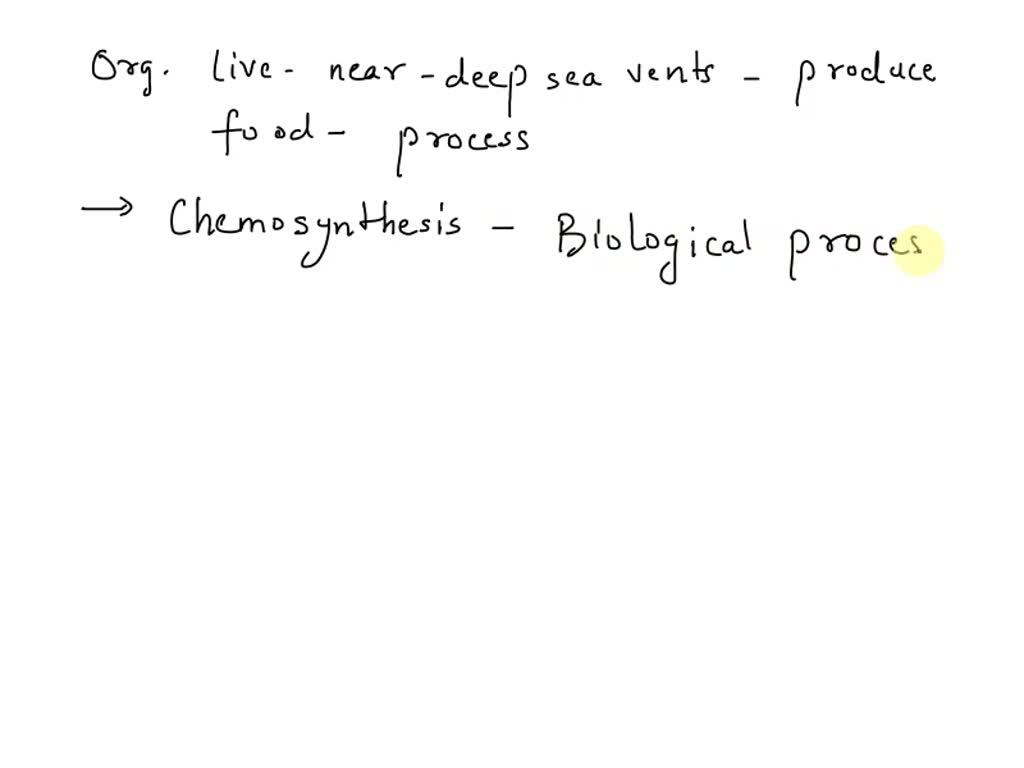 Org. live - near - deep sea vents - produce
food - process
→ Chemosynthesis - Biological proces